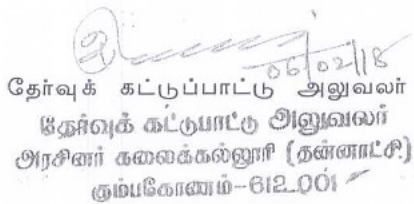 06/02/18
தேர்வுக் கட்டுப்பாட்டு அலுவலர்
தேர்வுக் கட்டுபாட்டு அலுவலர்
அரசினர் கலைக்கல்லூரி (தன்னாட்சி)
கும்பகோணம்-612 001